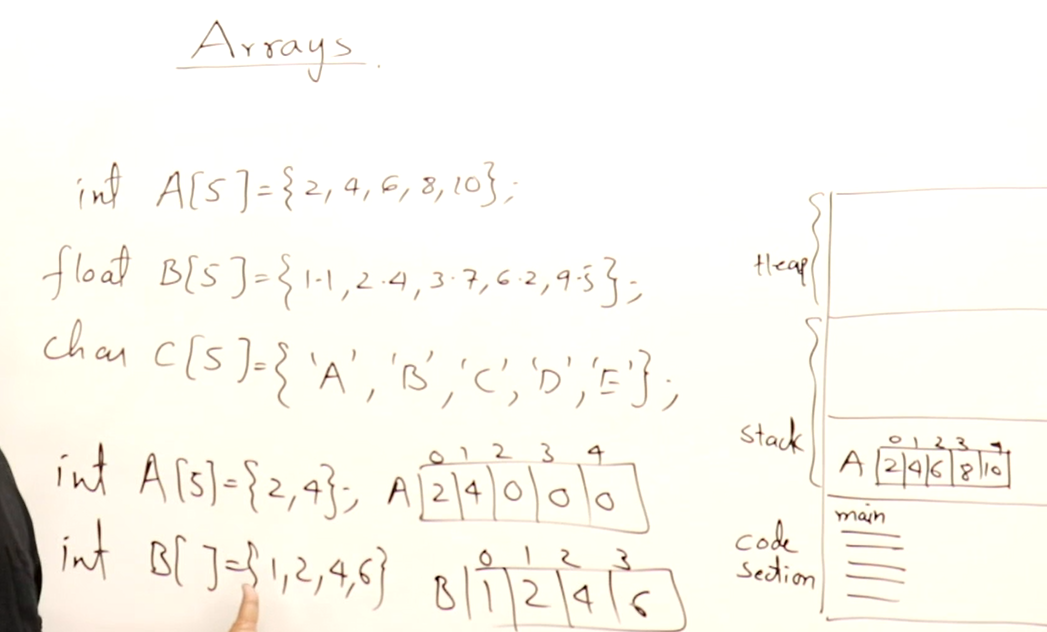 Arrays
int A[5]={2,4,6,8,10};
float B[5]={1.1,2.4,3.7,6.2,9.5};
char C[5]={'A','B','C','D','E'};
int A[5]={2,4};
0 1 2 3 4
A 2 4 0 0 0
int B[ ]={1,2,4,6}
0 1 2 3
B 1 2 4 6
Heap
stack
0 1 2 3 4
A 2 4 6 8 10
code
section
main